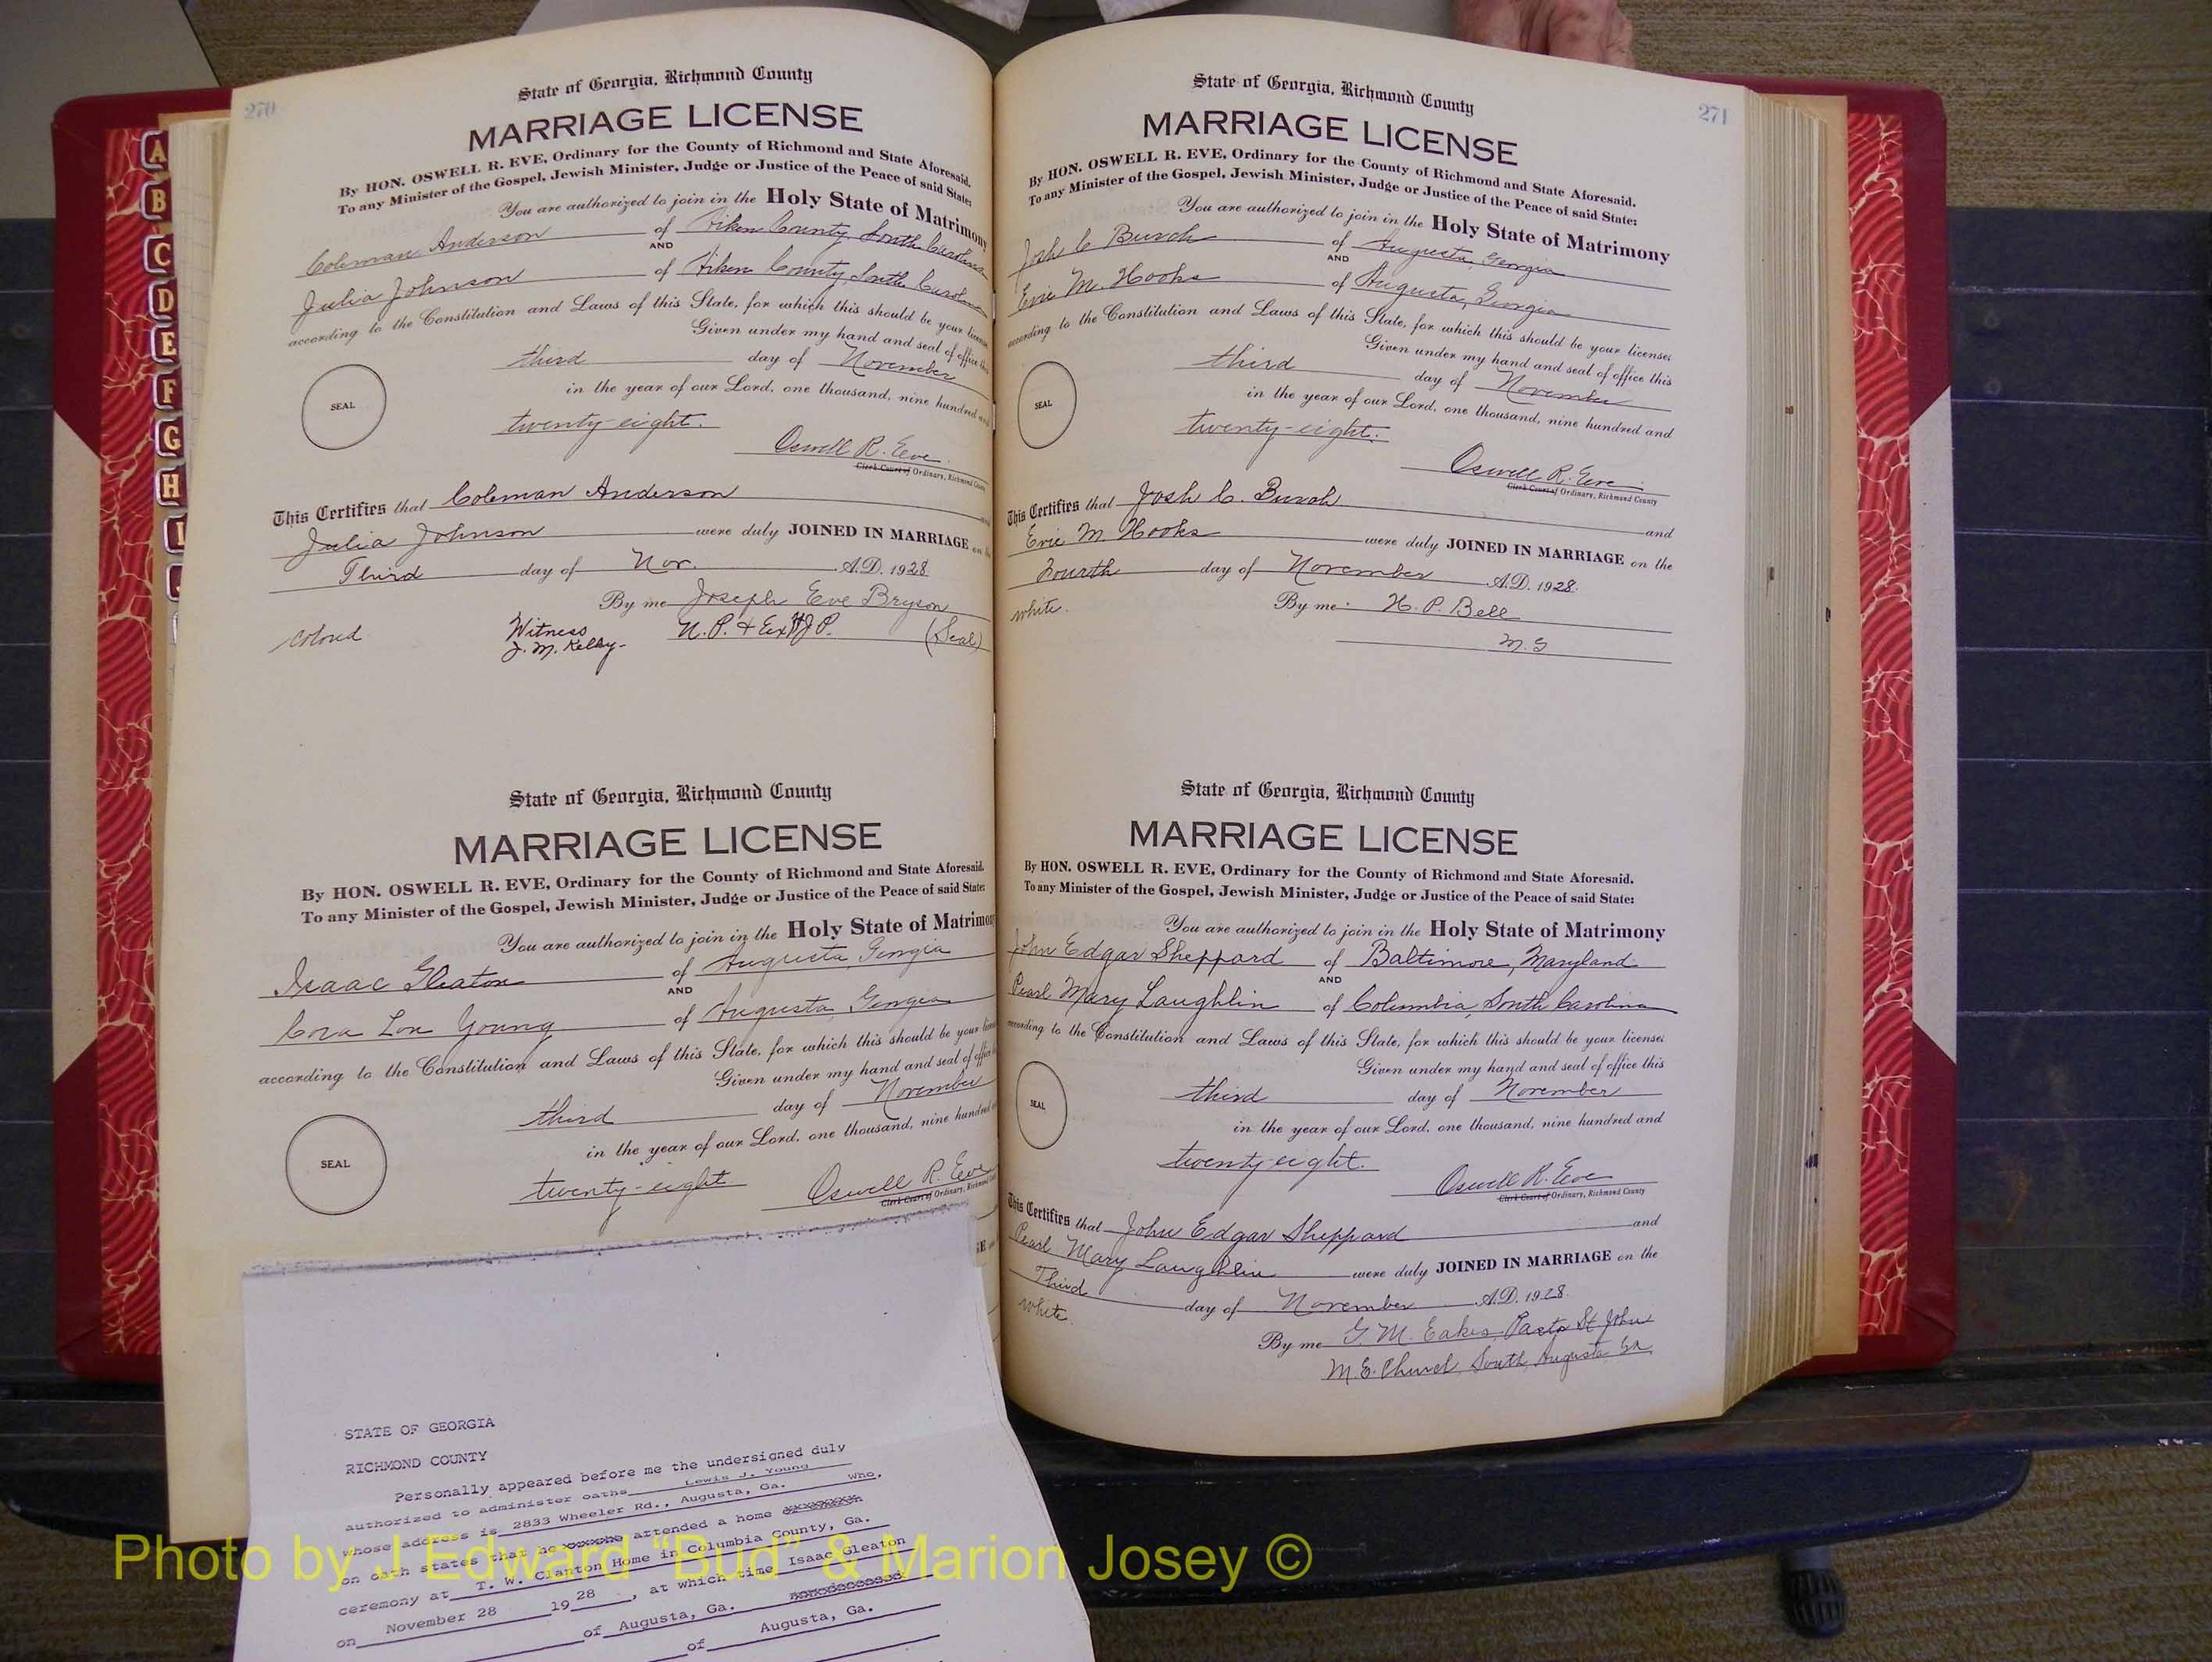 270
State of Georgia, Richmond County
MARRIAGE LICENSE
By HON. OSWELL R. EVE, Ordinary for the County of Richmond and State Aforesaid.
To any Minister of the Gospel, Jewish Minister, Judge or Justice of the Peace of said State:
You are authorized to join in the Holy State of Matrimony
Coleman Anderson of Aiken County, South Carolina
AND
Julia Johnson of Aiken County, South Carolina
according to the Constitution and Laws of this State, for which this should be your license
Given under my hand and seal of office this
third day of November
in the year of our Lord, one thousand, nine hundred and
SEAL
twenty-eight.
Oswell R. Eve
Clerk Court of Ordinary, Richmond County
This Certifies that Coleman Anderson and
Julia Johnson were duly JOINED IN MARRIAGE on
Third day of Nov. A.D. 1928
By me Joseph Eve Bryson
colored Witness N.P. & Ex J.P. (Seal)
J. M. Kelly-
State of Georgia, Richmond County
MARRIAGE LICENSE
By HON. OSWELL R. EVE, Ordinary for the County of Richmond and State Aforesaid.
To any Minister of the Gospel, Jewish Minister, Judge or Justice of the Peace of said State:
You are authorized to join in the Holy State of Matrimon
Isaac Gleaton of Augusta, Georgia
AND
Cora Lou Young of Augusta, Georgia
according to the Constitution and Laws of this State, for which this should be your
Given under my hand and seal of office
third day of November
in the year of our Lord, one thousand, nine hundred
SEAL
twenty-eight
Oswell R. Eve
Clerk Court of Ordinary, Richmond
STATE OF GEORGIA
RICHMOND COUNTY
Personally appeared before me the undersigned duly
authorized to administer oaths Lewis J. Young who,
whose address is 2833 Wheeler Rd., Augusta, Ga.
on oath states that he attended a home
ceremony at T. W. Clanton Home in Columbia County, Ga.
on November 28 1928, at which time Isaac Gleaton
of Augusta, Ga.
of Augusta, Ga.
271
State of Georgia, Richmond County
MARRIAGE LICENSE
By HON. OSWELL R. EVE, Ordinary for the County of Richmond and State Aforesaid.
To any Minister of the Gospel, Jewish Minister, Judge or Justice of the Peace of said State:
You are authorized to join in the Holy State of Matrimony
Josh C Burch of Augusta, Georgia
AND
Evie M. Hooks of Augusta, Georgia
according to the Constitution and Laws of this State, for which this should be your license;
Given under my hand and seal of office this
third day of November
in the year of our Lord, one thousand, nine hundred and
SEAL
twenty-eight.
Oswell R. Eve
Clerk Court of Ordinary, Richmond County
This Certifies that Josh C. Burch and
Evie M Hooks were duly JOINED IN MARRIAGE on the
Fourth day of November A.D. 1928.
white. By me H. P. Bell
M.G
State of Georgia, Richmond County
MARRIAGE LICENSE
By HON. OSWELL R. EVE, Ordinary for the County of Richmond and State Aforesaid.
To any Minister of the Gospel, Jewish Minister, Judge or Justice of the Peace of said State:
You are authorized to join in the Holy State of Matrimony
John Edgar Sheppard of Baltimore, Maryland
AND
Pearl Mary Laughlin of Columbia, South Carolina
according to the Constitution and Laws of this State, for which this should be your license;
Given under my hand and seal of office this
third day of November
in the year of our Lord, one thousand, nine hundred and
SEAL
twenty-eight.
Oswell R. Eve
Clerk Court of Ordinary, Richmond County
This Certifies that John Edgar Sheppard and
Pearl Mary Laughlin were duly JOINED IN MARRIAGE on the
Third day of November A.D. 1928.
white.
By me G. M. Eakes, Pastor St John
M.E. Church, South, Augusta Ga
A
B
C
D
E
F
G
H
I
Photo by J Edward “Bud” & Marion Josey ©